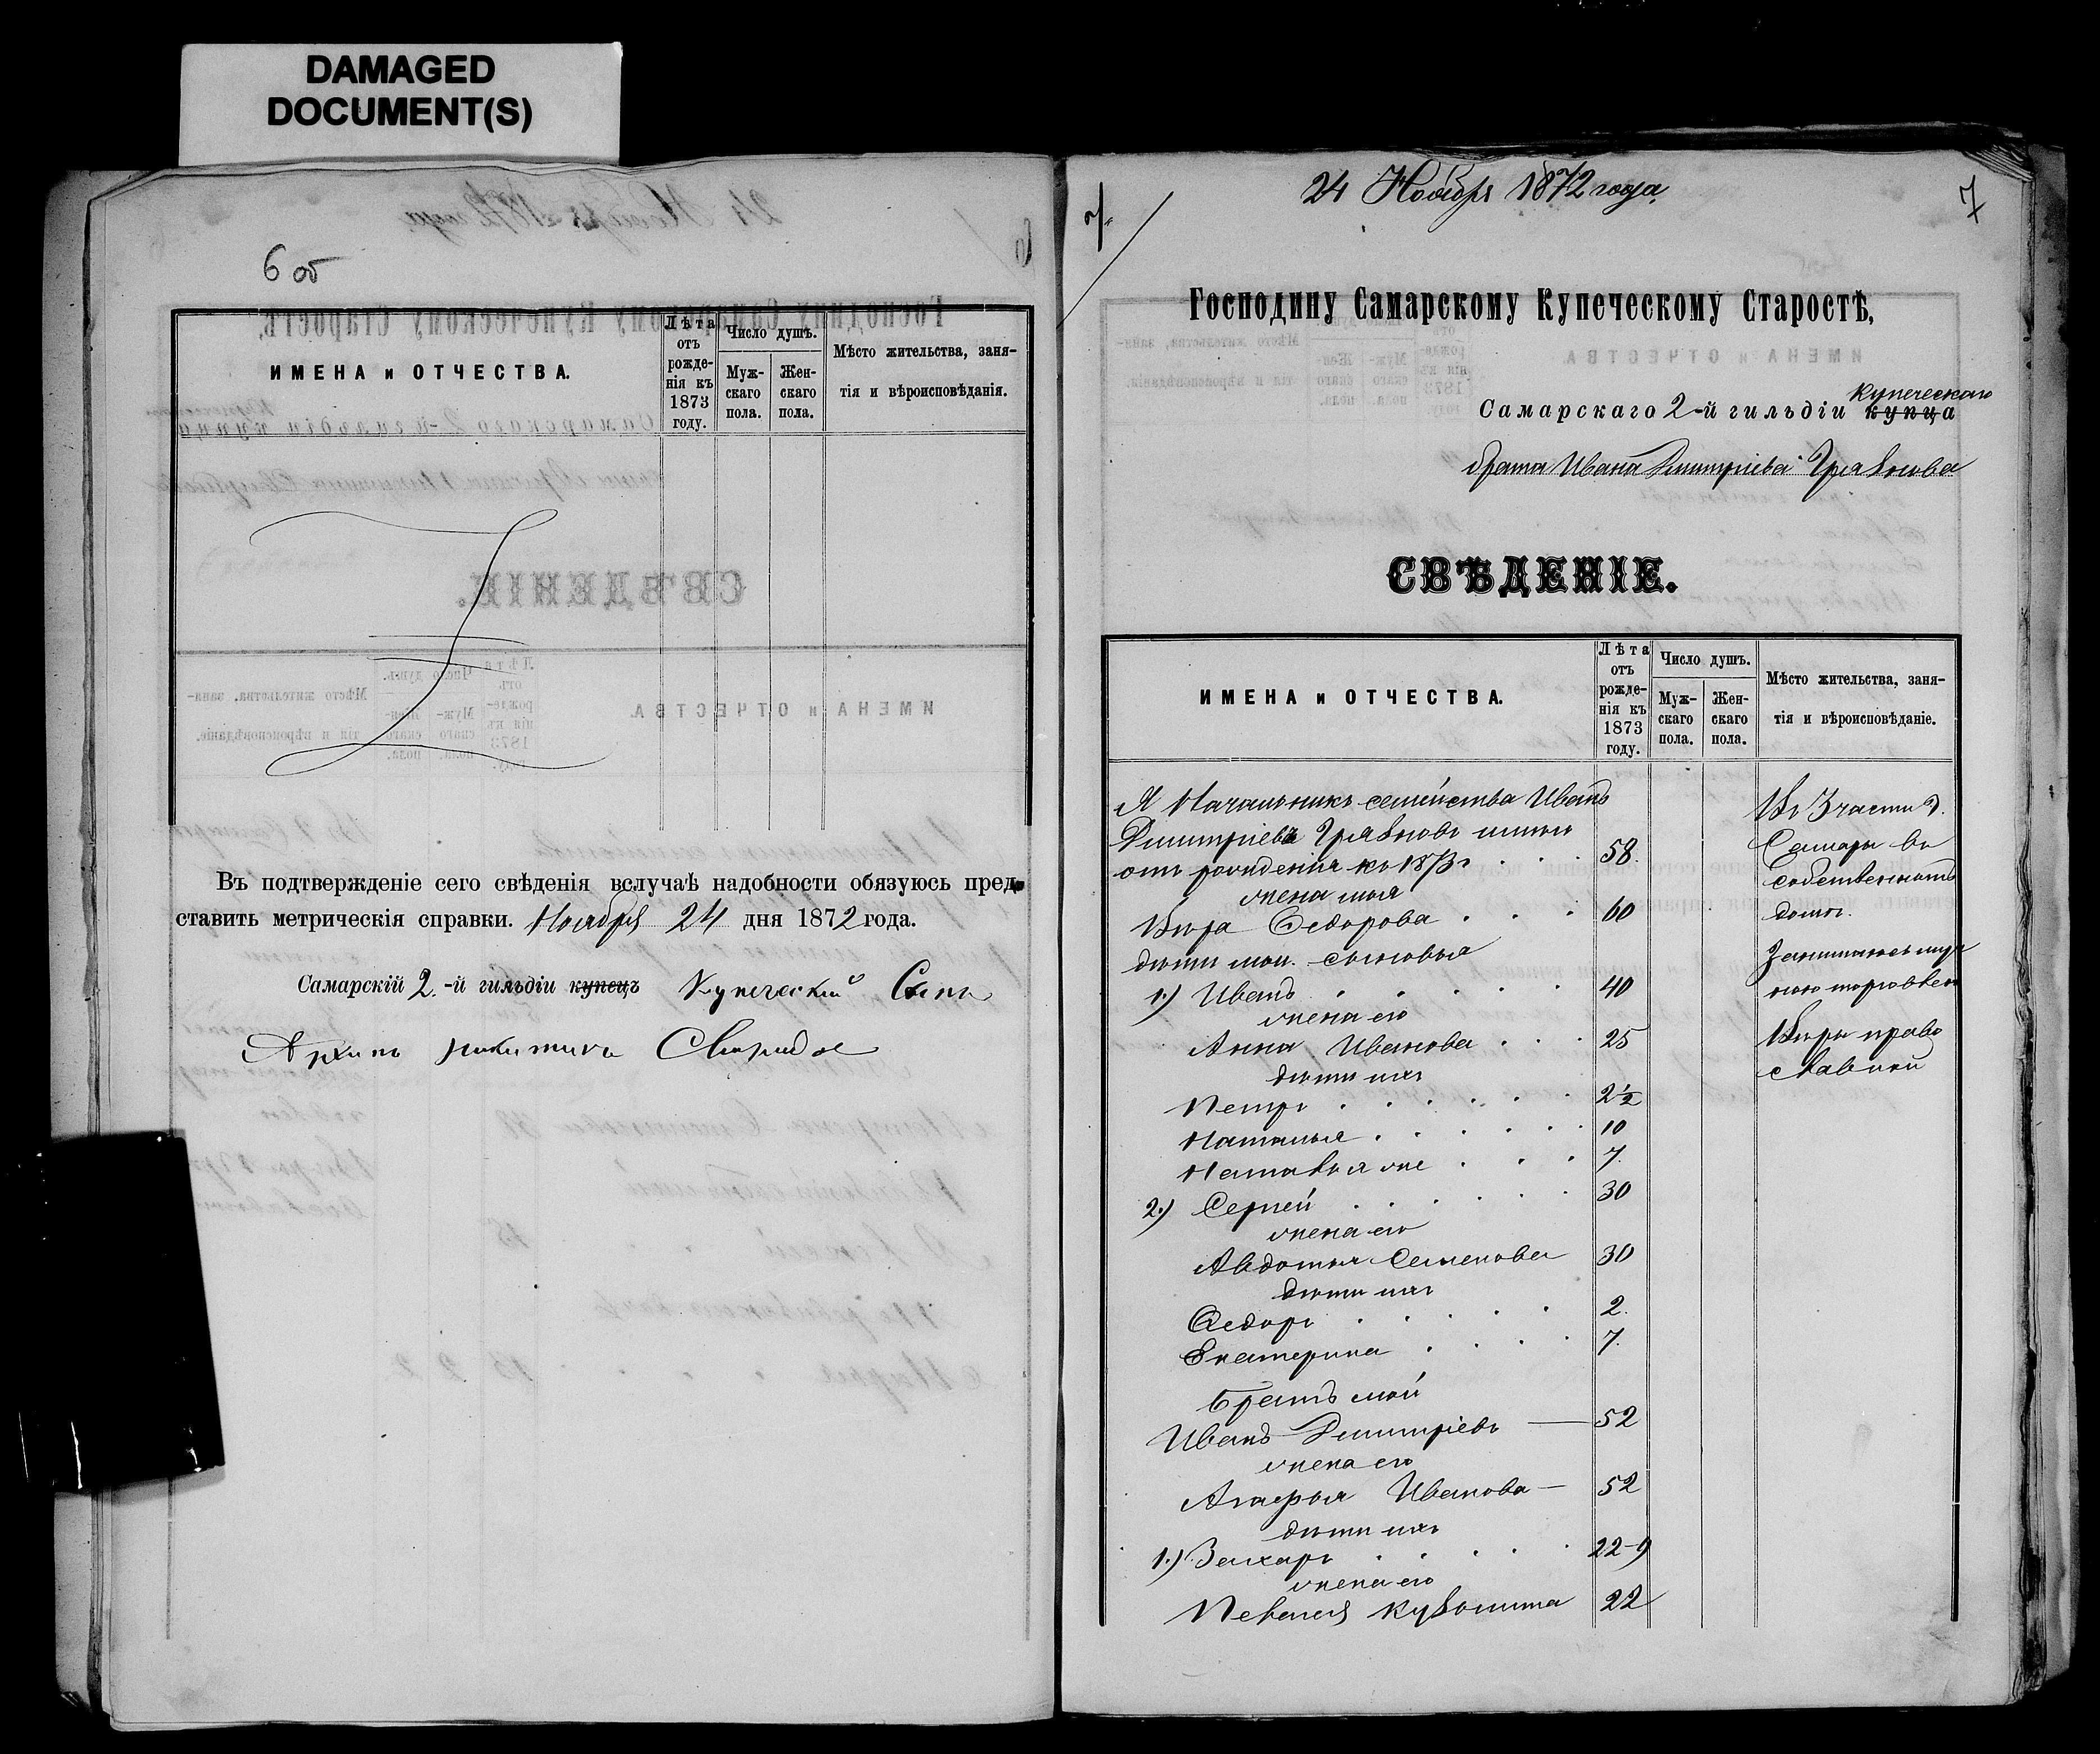 DAMAGED
DOCUMENT(S)
6 об
ИМЕНА и ОТЧЕСТВА.
Лѣта
отъ
рожде-
нія къ
1873
году.
Число душъ.
Муж-
скаго
пола.
Жен-
скаго
пола.
Мѣсто жительства, заня-
тія и вѣроисповѣданія.
Въ подтвержденіе сего свѣденія вслучаѣ надобности обязуюсь пред-
ставить метрическія справки. Ноября 24 дня 1872 года.
Самарскій 2.-й гильдіи купецъ Купеческий Сынъ
Архипъ Никитинъ
24 Ноября 1872 года.
7
7
Господину Самарскому Купеческому Старостѣ,
купеческаго
Самарскаго 2-й гильдіи купца
брата Ивана Дмитріева Грязнова
СВѢДЕНІЕ.
ИМЕНА и ОТЧЕСТВА.
Лѣта
отъ
рожде-
нія къ
1873
году.
Число душъ.
Муж-
скаго
пола.
Жен-
скаго
пола.
Мѣсто жительства, заня-
тія и вѣроисповѣданіе.
Я Начальникъ семейства Иванъ
Дмитріевъ Грязновъ
отъ рожденія къ 1873 г. 58.
жена моя
Вѣра Ѳедорова 60
дѣти мои. сыновья
1.) Иванъ 40
жена его
Анна Иванова 25
дѣти ихъ
Петръ 2½
Наталья 10
Наталья же 7.
2.) Сергей 30
жена его
Авдотья Семенова 30
дѣти ихъ
Ѳедоръ 2.
Екатерина 7.
Братъ мой
Иванъ Дмитріевъ — 52
жена его
Агафья Иванова — 52
дѣти ихъ
1.) Захаръ 22-9
жена его
Пелагея Кузьмина 22
Въ 3 части г.
Самары въ
собственномъ
домѣ.
Занимаюсь
торговлею
Вѣры право
славной